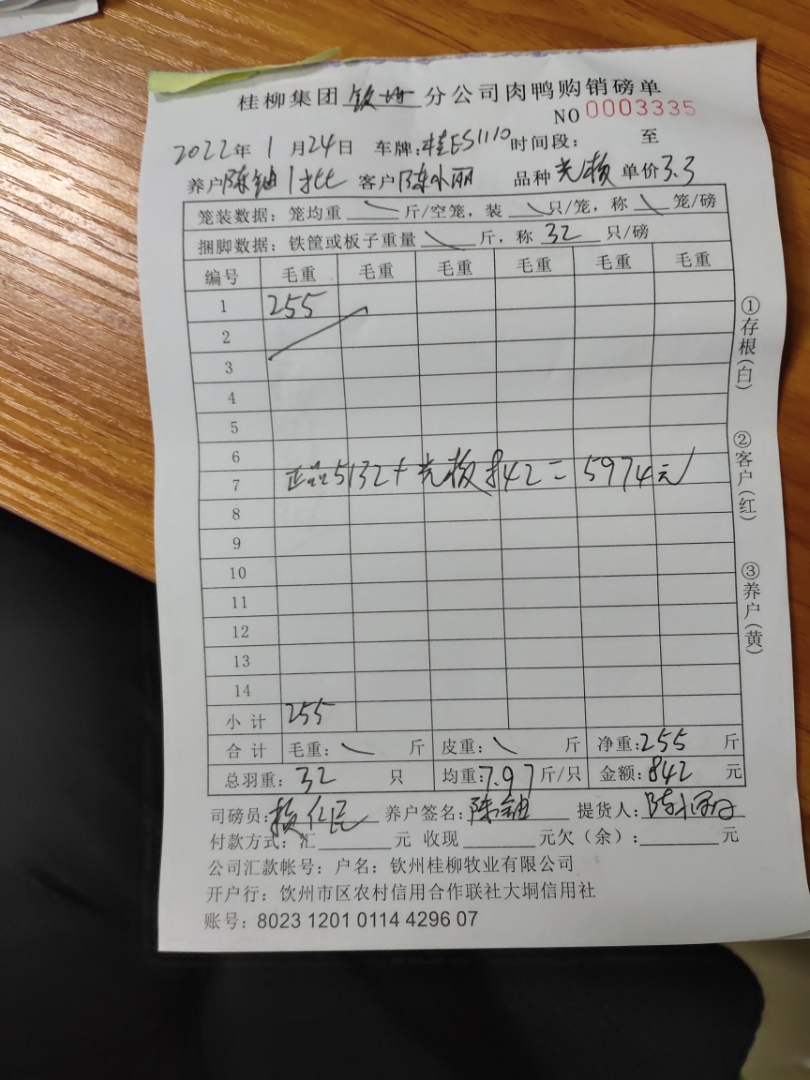 桂柳集团 钦州 分公司肉鸭购销磅单
NO 0003335
2022年 1 月 24 日 车牌:桂ES1110 时间段: 至
养户 陈铀 1批 客户 陈小丽 品种 光板 单价 3.3
笼装数据: 笼均重 \ 斤/空笼, 装 \ 只/笼, 称 \ 笼/磅
捆脚数据: 铁筐或板子重量 \ 斤, 称 32 只/磅
编号 毛重 毛重 毛重 毛重 毛重 毛重
1 255
2
3
4
5
6
7 正品5132+光板842=5974元
8
9
10
11
12
13
14
小 计 255
合 计 毛重: \ 斤 皮重: \ 斤 净重: 255 斤
总羽重: 32 只 均重: 7.97 斤/只 金额: 842 元
司磅员: 仁民 养户签名: 陈铀 提货人: 陈小丽
付款方式: 汇 元 收现 元欠(余): 元
公司汇款帐号: 户名: 钦州桂柳牧业有限公司
开户行: 钦州市区农村信用合作联社大垌信用社
账号: 8023 1201 0114 4296 07
①存根(白)
②客户(红)
③养户(黄)